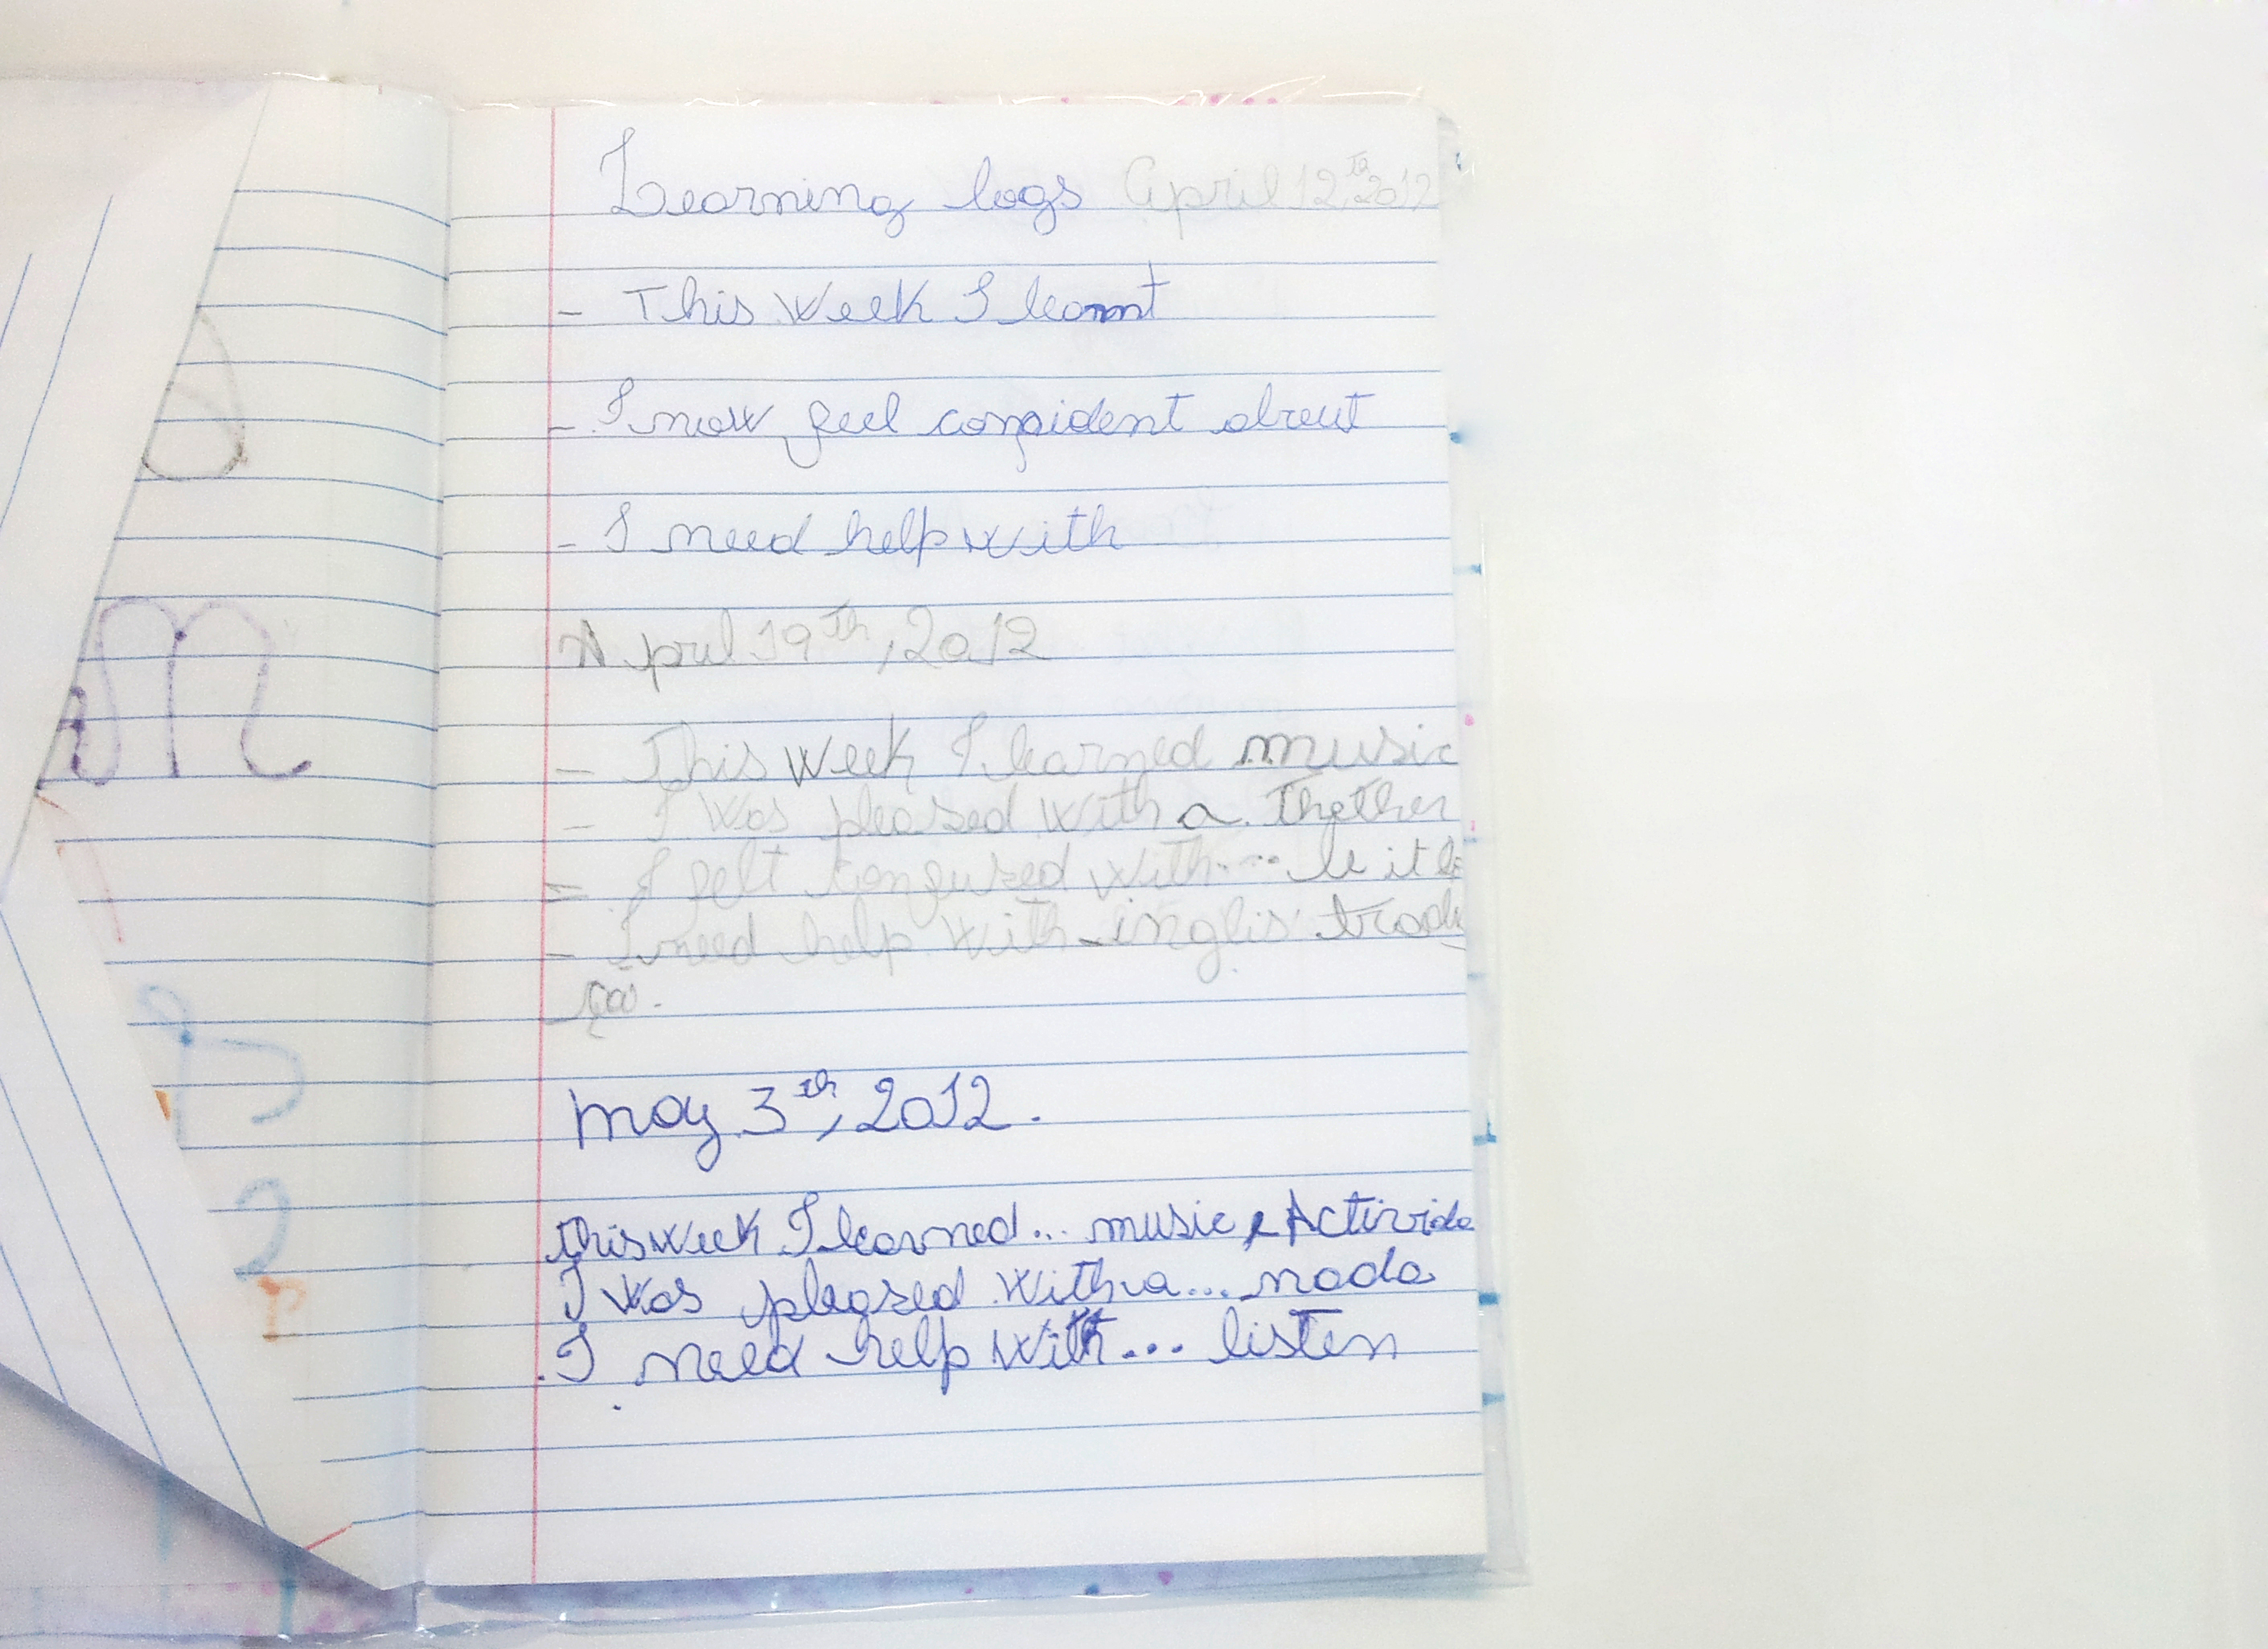 Learning logs April 12th, 2012
- This week I learnt
- I now feel confident about
- I need help with
April 19th, 2012
- This week I learned music
- I was pleased with a Thether
- I felt confused with...
- I need help with inglis tradu
ção.
may 3th, 2012.
this week I learned... music e Activida
I was pleased with a... nada
I need help with... listen
m